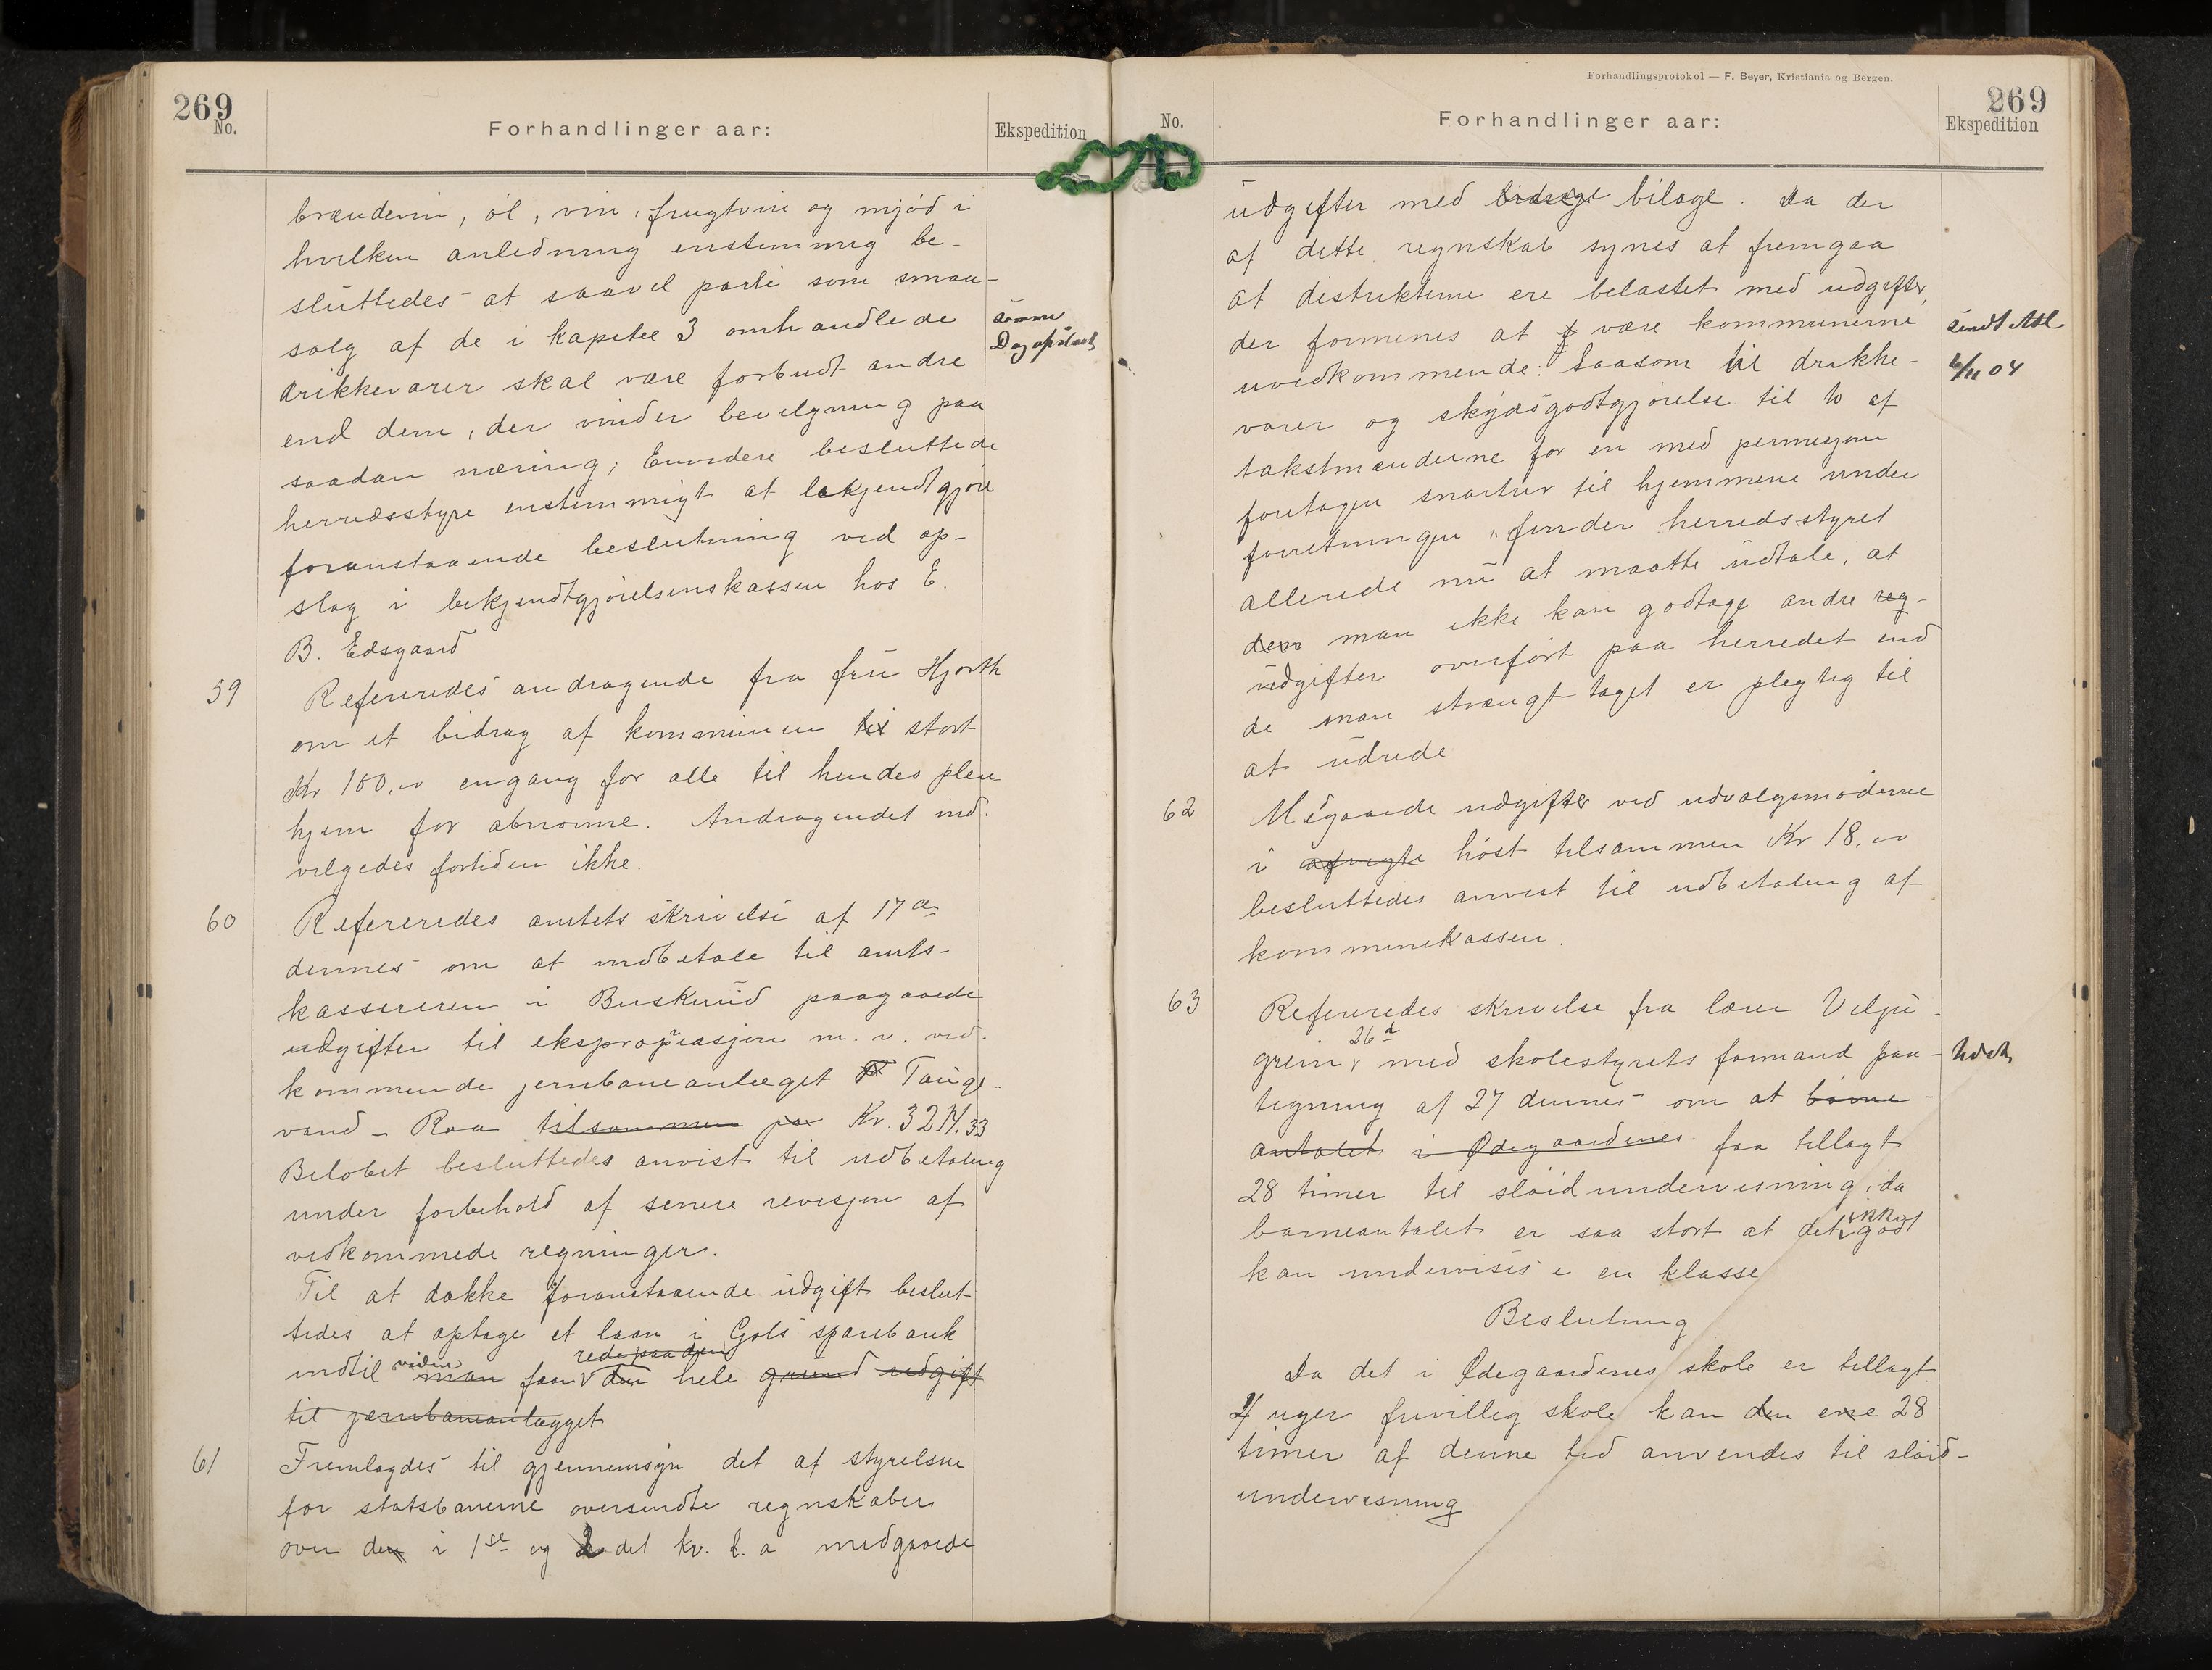 269
No.
Forhandlinger aar:
Ekspedition
brændevin, øl, vin, frugtvin og mjød i
hvilken anledning enstemmig be-
sluttedes at saavel parti som smaa-
salg af de i kapitel 3 omhandlede
drikkevarer skal være forbudt andre
end dem, der vinder bevilgning paa
saadan næring; Envidere besluttede
herredsstyre enstemmigt at bekjendtgjøre
foranstaaende beslutning ved op-
slag i bekjendtgjørelsenskassen hos E.
B. Edsgaard
samme
Dag opslaat
59
Refereredes andragende fra frü Hjorth
om et bidrag af kommünen til stort
Kr 100,00 engang for alle til hendes pleie
hjem for abnorme. Andragendet ind-
vilgedes fortiden ikke.
60
Refereredes amtets skrivelse af 17de
dennes om at indbetale til amts-
kassereren i Buskerüd paagaaede
udgifter til ekspropriasjon m. v. ved-
kommende jernbaneanlæget Taüge-
vand - Roa tilsammen paa Kr. 3214.33
Beløbet besluttedes anvist til udbetaling
under forbehold af senere revisjon af
vedkommede regninger.
Til at dække foranstaaende üdgift beslut
tedes at optage et laan i Gols sparebank
indtil videre man faar rede paa den den hele gründ udgift
til jernbaneanlægget
61
Fremlagdes til gjennemsyn det af styrelsen
for statsbanerne oversendte regnskaber
over den i 1ste og 2 det kv. d. a medgaaede
Forhandlingsprotokol — F. Beyer, Kristiania og Bergen.
269
No.
Forhandlinger aar:
Ekspedition
üdgifter med bilage. Da der
af dette regnskab synes at fremgaa
at distrikterne ere belastet med udgifter,
der formenes at være kommunerne
uvedkommende: Saasom til drikke-
varer og skydsgodtgjørelse til to af
takstmænderne for en med permisjon
foretagen snartur til hjemmene under
forretningen, finder herredsstyret
allerede nü at maatte üdtale, at
den man ikke kan godtage andre reg-
üdgifter overført paa herredet end
de man strængt taget er plegtig til
at üdrede
sendt Atl
6/11 04
62
Megaaede udgifter ved udvalgsmøderne
i afvigte høst tilsammen Kr 18,00
besluttedes anvist til udbetaling af
kommunekassen.
63
Refereredes skrivelse fra lærer Veljü-
grein 26d med skolestyrets formand paa-
tegning af 27 dennes om at børne-
antalet i Ødegaardenes faa tillagt
28 timer til sløidundervisning, da
barneantalet er saa stort at det ikke godt
kan undervises i en klasse
Beslutning
Da det i Ødegaardenes skole er tillagt
4 uger frivillig skole kan den ene 28
timer af denne tid anvendes til sløid-
undervisning